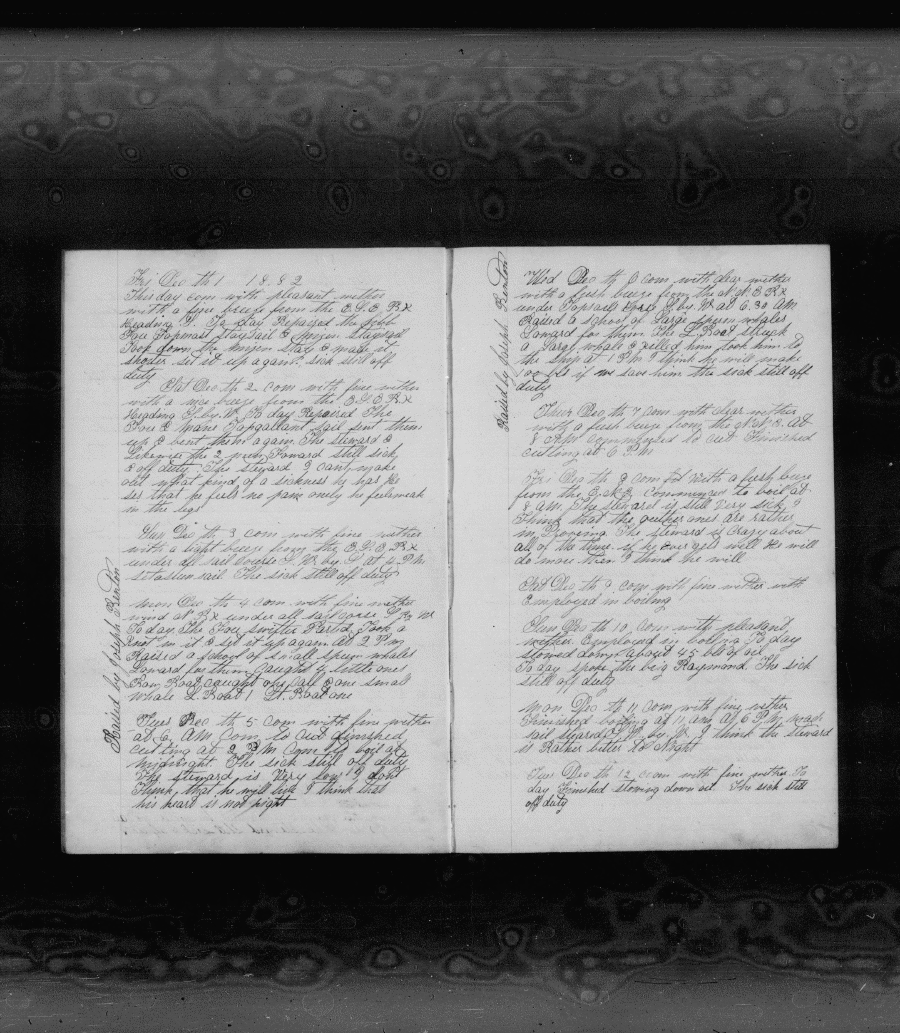 Fri Dec th 1 1882
This day com with pleasant wether
with a fine breeze from the E.S.E. Rx
heading S. To day Repaired the
Fore Topmast Staysail & mizen staysail
Took down the mizen stay & made it
shorter set it up again. sick still off
duty
Sat Dec th 2 com with fine wether
with a nice breeze from the E.S.E Rx
Heading S. by W. To day Repaired The
Fore & Mane Topgallant sail sent them
up & bent them again The steward &
Likewise the 2 men Foward still sick
& off duty. The steward I cant make
out what kind of a sickness he has he
ses that he feels no pane onely he feels weak
in the legs
Sun Dec th 3 com with fine wether
with a light breeze from the E.S.E. Rx
under all sail course S. W. by S. at 4 P M
set stunsail. The sick still off duty
Mon Dec th 4 com with fine wether
wind as Rx under all sail corse S by W
To day The Fore swifter Parted Took a
knot in it & set it up again. At 2 P m
Raised a school of small sperm whales
Loward for them Caught 3 little ones
Bow Boat caught one calf & one small
whale L. Boat 1 St. Boat one
Raised by Joseph Renton
Tues Dec th 5 com with fine wether
at 6 Am Com to cut finished
cutting at 2 P.M Com to boil at
midnight The sick still off duty
The steward is Very low I dont
Think that he will live I think that
his heart is not right
Wed Dec th 6 com with clear wether
with a fresh breeze from the N.N.E Rx
under Topsails Corse S. by W. at 6.30 AM
Raised a school of Large sperm whales
Loward for them The L. Boat struck
a Large whale & killed him took him to
the ship at 1 P.M I think he will make
100 bls if we save him the sick still off
duty
Raised by Joseph Renton
Thur Dec th 7 com with clear wether
with a fresh breeze from the N.N.E. at
8 AM commenced to cut Finished
cutting at 6 P.M
Fri Dec th 8 com with a fresh breeze
from the commenced to boil at
8 AM. The steward is still Very sick I
Think that the outher ones are rather
improveing The steward is Crazy about
all of the time. if he ever gets well He will
do more then I think he will
Sat Dec th 9 com with fine wether with
Employed in boiling
Sun Dec th 10 com with pleasant
wether Employed in boiling To day
stowed down about 45 bbls of oil
To day spoke the brig Raymond The sick
still off duty
Mon Dec th 11 com with fine wether
Finished boiling at 11 am At 6 P M made
sail steared S.W. by W. I think the steward
is Rather better to Night
Tues Dec th 12 com with fine wether To
day finished stowing down oil. The sick still
off duty